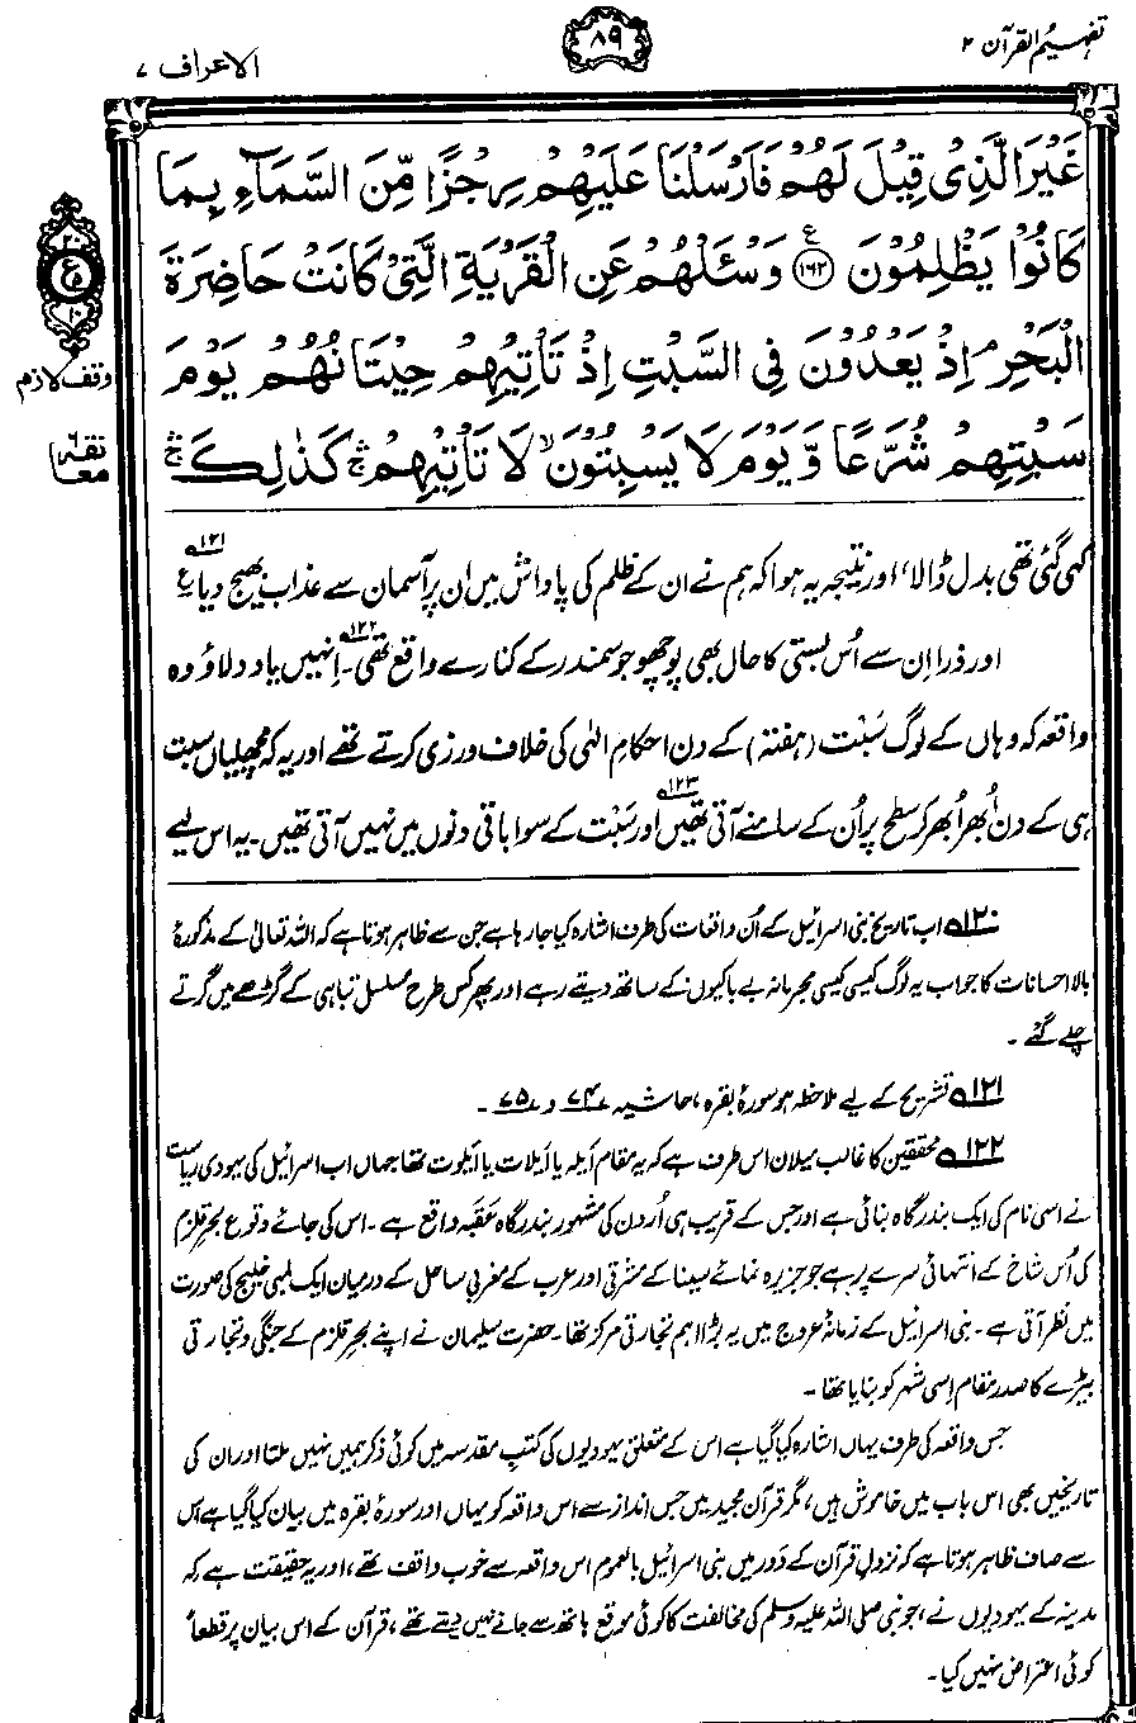 تفہیم القرآن ۲
۸۹
الاعراف ۷
غَيْرَ الَّذِىْ قِيْلَ لَهُمْ فَاَرْسَلْنَا عَلَيْهِمْ رِجْزًا مِّنَ السَّمَآءِ بِمَا
كَانُوْا يَظْلِمُوْنَ ﴿۱۶۲﴾ ع وَسْـَٔلْهُمْ عَنِ الْقَرْيَةِ الَّتِىْ كَانَتْ حَاضِرَةَ
الْبَحْرِ ۘ اِذْ يَعْدُوْنَ فِى السَّبْتِ اِذْ تَاْتِيْهِمْ حِيْتَانُهُمْ يَوْمَ
سَبْتِهِمْ شُرَّعًا وَّيَوْمَ لَا يَسْبِتُوْنَ ۙ لَا تَاْتِيْهِمْ ۛۚ كَذٰلِكَ ۛۚ
۲۰
ع
۵
۱۰
وقف لازم
معا
کہی گئی تھی بدل ڈالا، اور نتیجہ یہ ہوا کہ ہم نے ان کے ظلم کی پاداش میں ان پر آسمان سے عذاب بھیج دیا ۱۲۱؎ ع
اور ذرا اِن سے اُس بستی کا حال بھی پوچھو جو سمندر کے کنارے واقع تھی ۱۲۲؎۔ اِنہیں یاد دلاؤ وہ
واقعہ کہ وہاں کے لوگ سَبْت (ہفتہ) کے دن احکامِ الٰہی کی خلاف ورزی کرتے تھے اور یہ کہ مچھلیاں سبت
ہی کے دن اُبھر اُبھر کر سطح پر اُن کے سامنے آتی تھیں ۱۲۳؎ اور سَبْت کے سوا باقی دنوں میں نہیں آتی تھیں۔ یہ اس لیے
۱۲۰؎ اب تاریخ بنی اسرائیل کے اُن واقعات کی طرف اشارہ کیا جا رہا ہے جن سے ظاہر ہوتا ہے کہ اللہ تعالیٰ کے مذکورۂ
بالا احسانات کا جواب یہ لوگ کیسی کیسی مجرمانہ بے باکیوں کے ساتھ دیتے رہے اور پھر کس طرح مسلسل تباہی کے گڑھے میں گرتے
چلے گئے۔
۱۲۱؎ تشریح کے لیے ملاحظہ ہو سورۂ بقرہ، حاشیہ ۷۴؎ و ۷۵؎۔
۱۲۲؎ محققین کا غالب میلان اس طرف ہے کہ یہ مقام اَیلہ یا اَیلات یا اَیلوت تھا جہاں اب اسرائیل کی یہودی ریاست
نے اسی نام کی ایک بندرگاہ بنائی ہے اور جس کے قریب ہی اُردن کی مشہور بندرگاہ عَقَبہ واقع ہے۔ اس کی جائے وقوع بحرِ قلزم
کی اُس شاخ کے انتہائی سرے پر ہے جو جزیرہ نمائے سینا کے مشرقی اور عرب کے مغربی ساحل کے درمیان ایک لمبی خلیج کی صورت
میں نظر آتی ہے۔ بنی اسرائیل کے زمانۂ عروج میں یہ بڑا اہم تجارتی مرکز تھا۔ حضرت سلیمان نے اپنے بحرِ قلزم کے جنگی و تجارتی
بیڑے کا صدر مقام اِسی شہر کو بنایا تھا۔
جس واقعہ کی طرف یہاں اشارہ کیا گیا ہے اس کے متعلق یہودیوں کی کتبِ مقدسہ میں کوئی ذکر ہمیں نہیں ملتا اور ان کی
تاریخیں بھی اس باب میں خاموش ہیں، مگر قرآن مجید میں جس انداز سے اس واقعہ کو یہاں اور سورۂ بقرہ میں بیان کیا گیا ہے اس
سے صاف ظاہر ہوتا ہے کہ نزولِ قرآن کے دَور میں بنی اسرائیل بالعموم اس واقعہ سے خوب واقف تھے، اور یہ حقیقت ہے کہ
مدینہ کے یہودیوں نے، جو نبی صلی اللہ علیہ وسلم کی مخالفت کا کوئی موقع ہاتھ سے جانے نہیں دیتے تھے، قرآن کے اس بیان پر قطعاً
کوئی اعتراض نہیں کیا۔